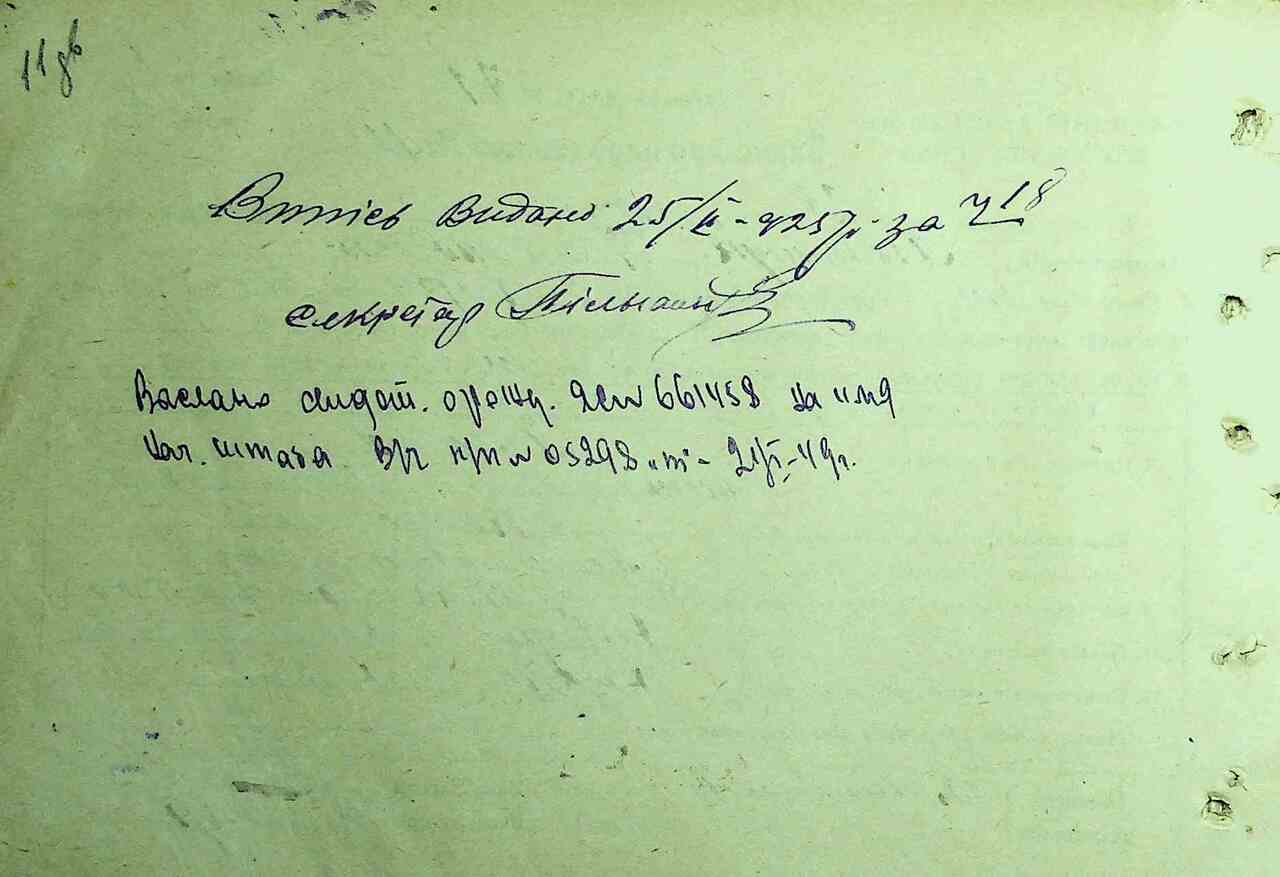 11 зв
Витісь видано 25/II-925 р. за ч 18
секретар
Выслано свидет. о рожд. № 661458 на имя
нач. штаба в/ч п/п № 05298 "т" - 21/I-49 г.